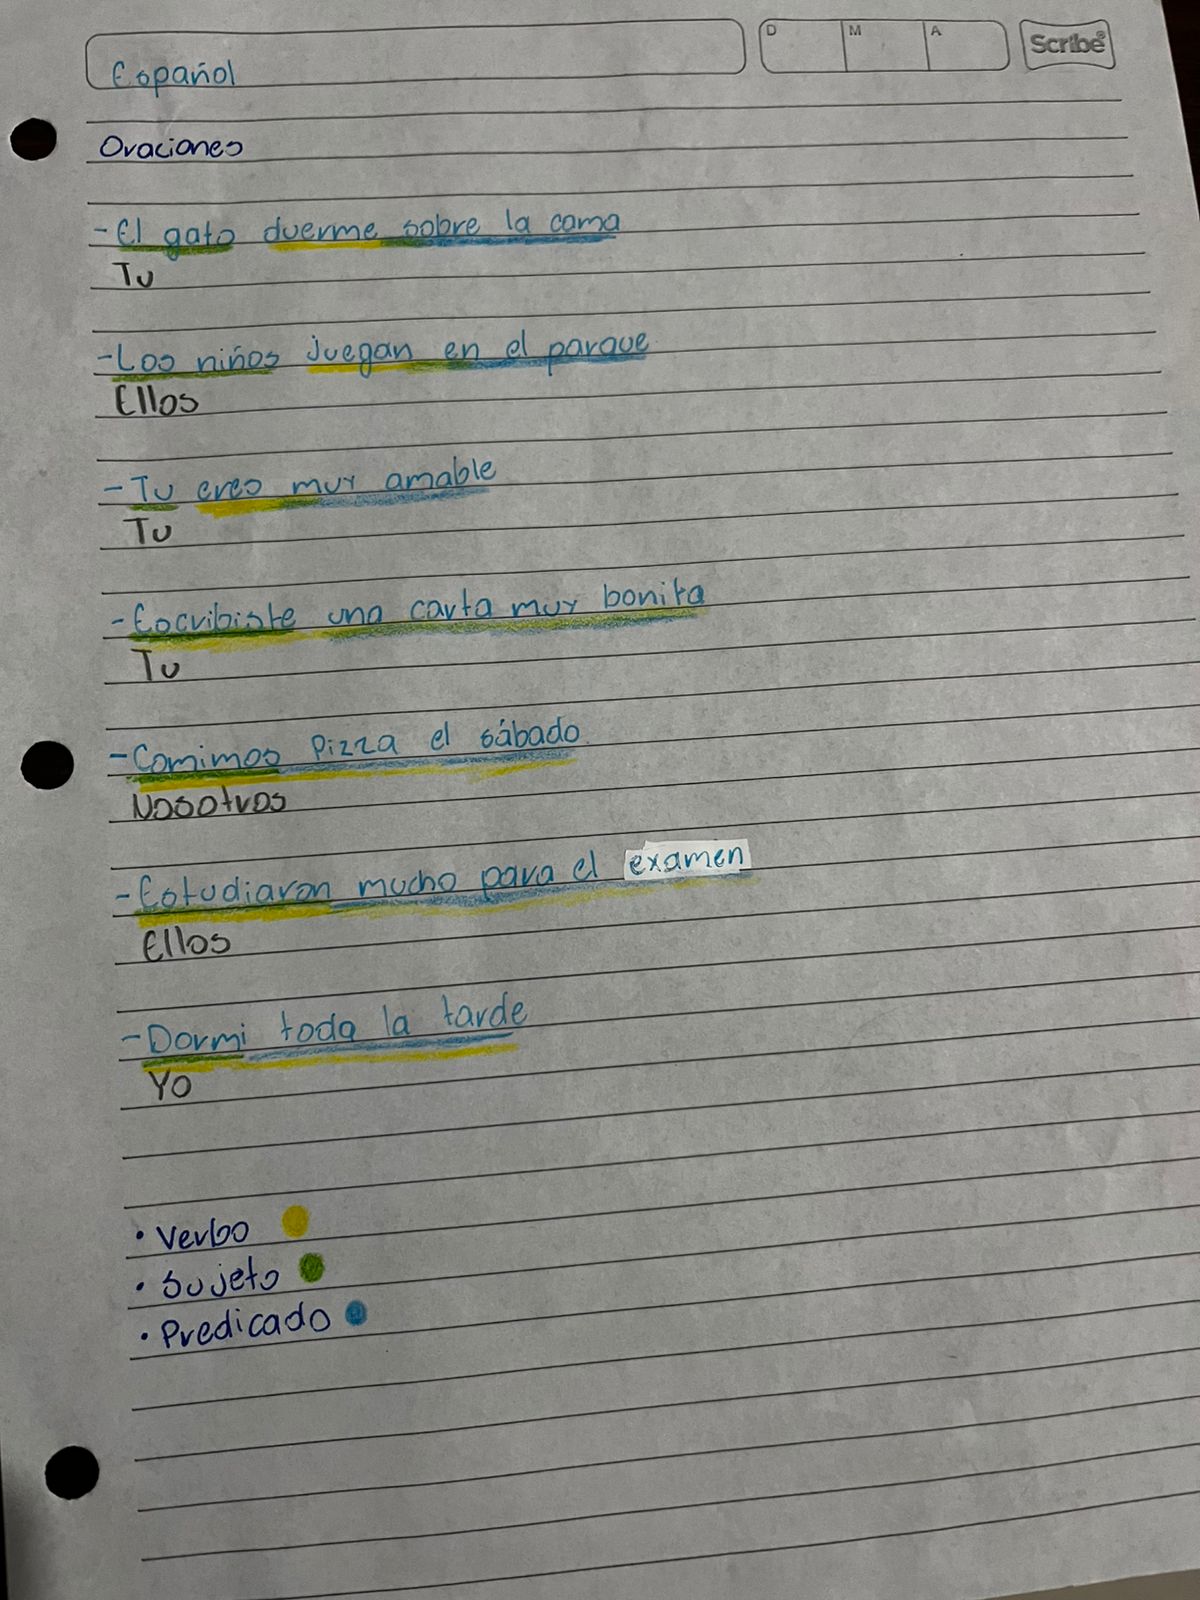 Español
D M A
Scribe
Oraciones
- El gato duerme sobre la cama
Tu
- Los niños juegan en el parque
Ellos
- Tu eres muy amable
Tu
- Escribiste una carta muy bonita
Tu
- Comimos Pizza el sábado.
Nosotros
- Estudiaron mucho para el examen
Ellos
- Dormi toda la tarde
Yo
• Verbo
• Sujeto
• Predicado